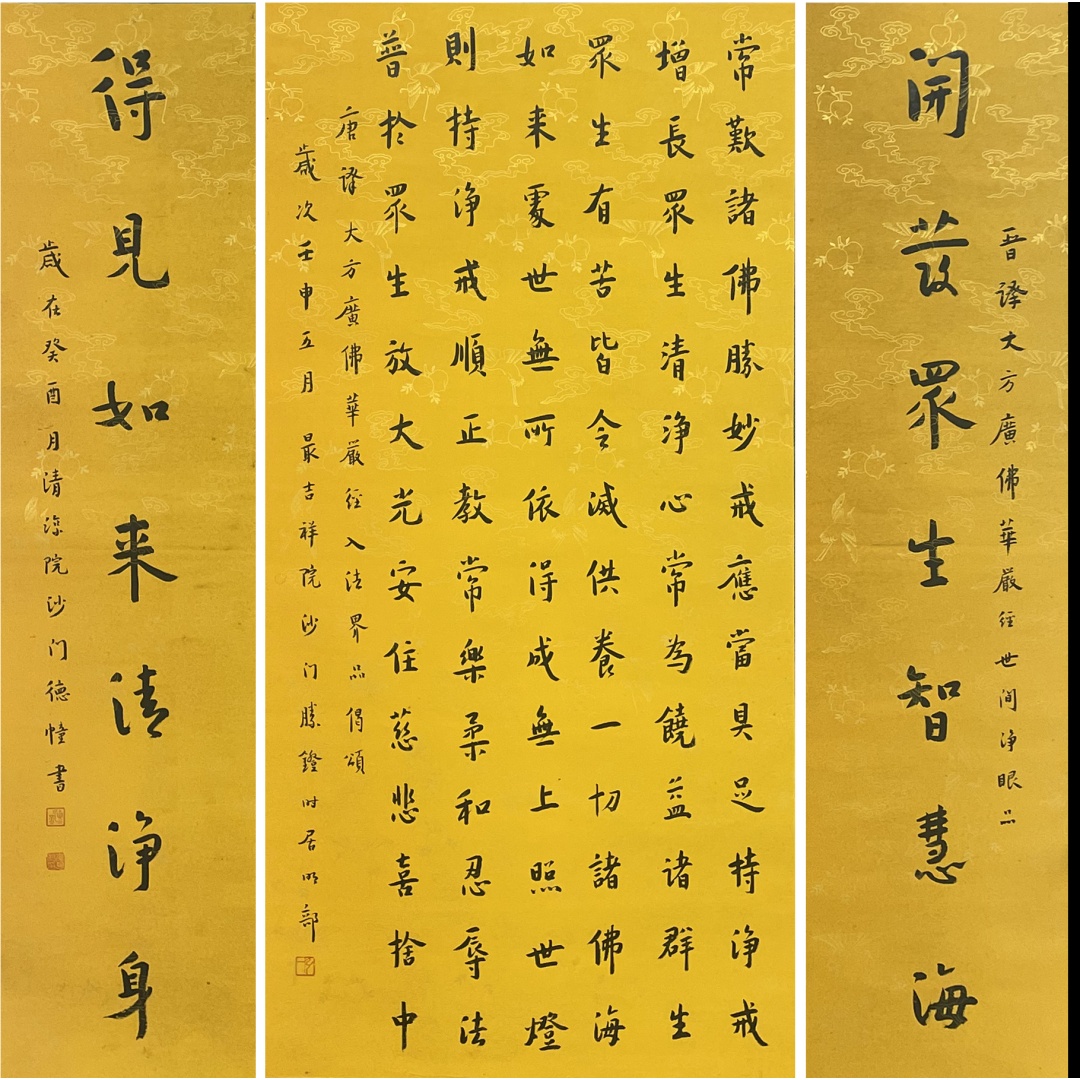 晉譯大方廣佛華嚴經世間淨眼品
開發眾生智慧海
常歎諸佛勝妙戒應當具足持淨戒
增長眾生清淨心常為饒益諸群生
眾生有苦皆令滅供養一切諸佛海
如来處世無所依得成無上照世燈
則持淨戒順正教常樂柔和忍辱法
普於眾生放大光安住慈悲喜捨中
唐譯大方廣佛華嚴經入法界品偈頌
歲次壬申五月最吉祥院沙门勝鐙时居明部
得見如来清淨身
歲在癸酉月清涼院沙门德幢書